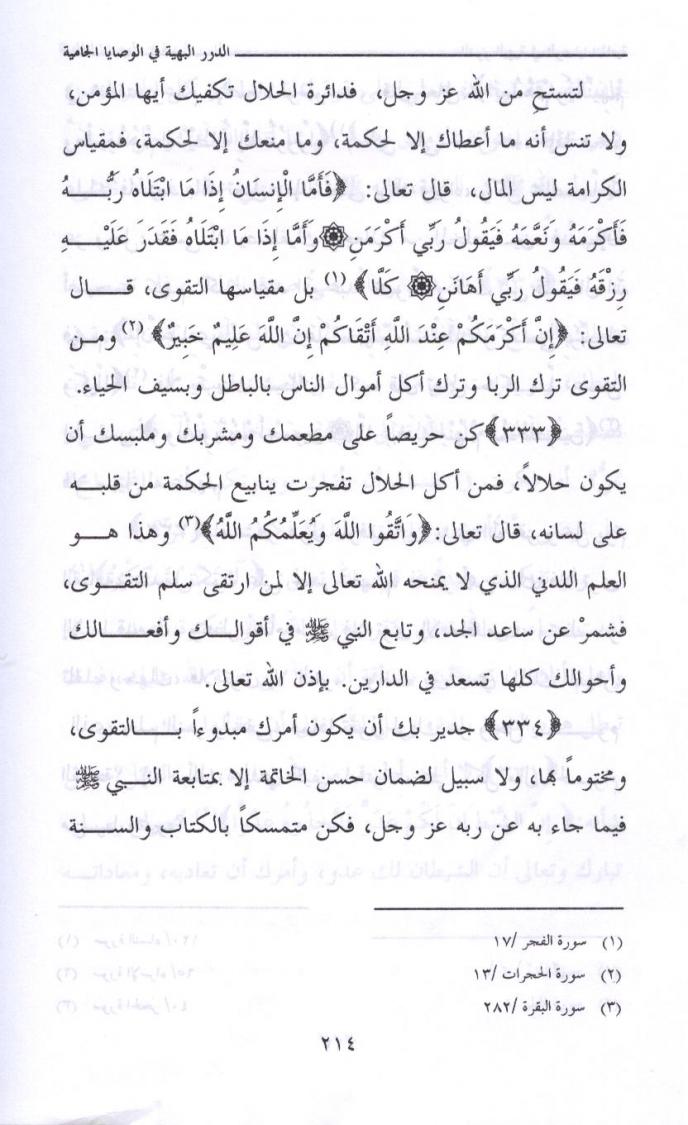 الدرر البهية في الوصايا الجامية
لتستحِ من الله عز وجل، فدائرة الحلال تكفيك أيها المؤمن،
ولا تنس أنه ما أعطاك إلا لحكمة، وما منعك إلا لحكمة، فمقياس
الكرامة ليس المال، قال تعالى: ﴿فَأَمَّا الْإِنسَانُ إِذَا مَا ابْتَلَاهُ رَبُّـــهُ
فَأَكْرَمَهُ وَنَعَّمَهُ فَيَقُولُ رَبِّي أَكْرَمَنِ۞وَأَمَّا إِذَا مَا ابْتَلَاهُ فَقَدَرَ عَلَيْـــهِ
رِزْقَهُ فَيَقُولُ رَبِّي أَهَانَنِ۞ كَلَّا﴾ (١) بل مقياسها التقوى، قـــال
تعالى: ﴿إِنَّ أَكْرَمَكُمْ عِنْدَ اللَّهِ أَتْقَاكُمْ إِنَّ اللَّهَ عَلِيمٌ خَبِيرٌ﴾ (٢) ومـــن
التقوى ترك الربا وترك أكل أموال الناس بالباطل وبسيف الحياء.
﴿٣٣٣﴾كن حريصاً على مطعمك ومشربك وملبسك أن
يكون حلالاً، فمن أكل الحلال تفجرت ينابيع الحكمة من قلبـــه
على لسانه، قال تعالى:﴿وَاتَّقُوا اللَّهَ وَيُعَلِّمُكُمُ اللَّهُ﴾(٣) وهذا هـــو
العلم اللدني الذي لا يمنحه الله تعالى إلا لمن ارتقى سلم التقـــوى،
فشمرْ عن ساعد الجد، وتابع النبي ﷺ في أقوالـــك وأفعـــالك
وأحوالك كلها تسعد في الدارين. بإذن الله تعالى.
﴿٣٣٤﴾ جدير بك أن يكون أمرك مبدوءاً بـــالتقوى،
ومختوماً بها، ولا سبيل لضمان حسن الخاتمة إلا بمتابعة النـــبي ﷺ
فيما جاء به عن ربه عز وجل، فكن متمسكاً بالكتاب والســـنة
(١) سورة الفجر /١٧
(٢) سورة الحجرات /١٣
(٣) سورة البقرة /٢٨٢
٢١٤